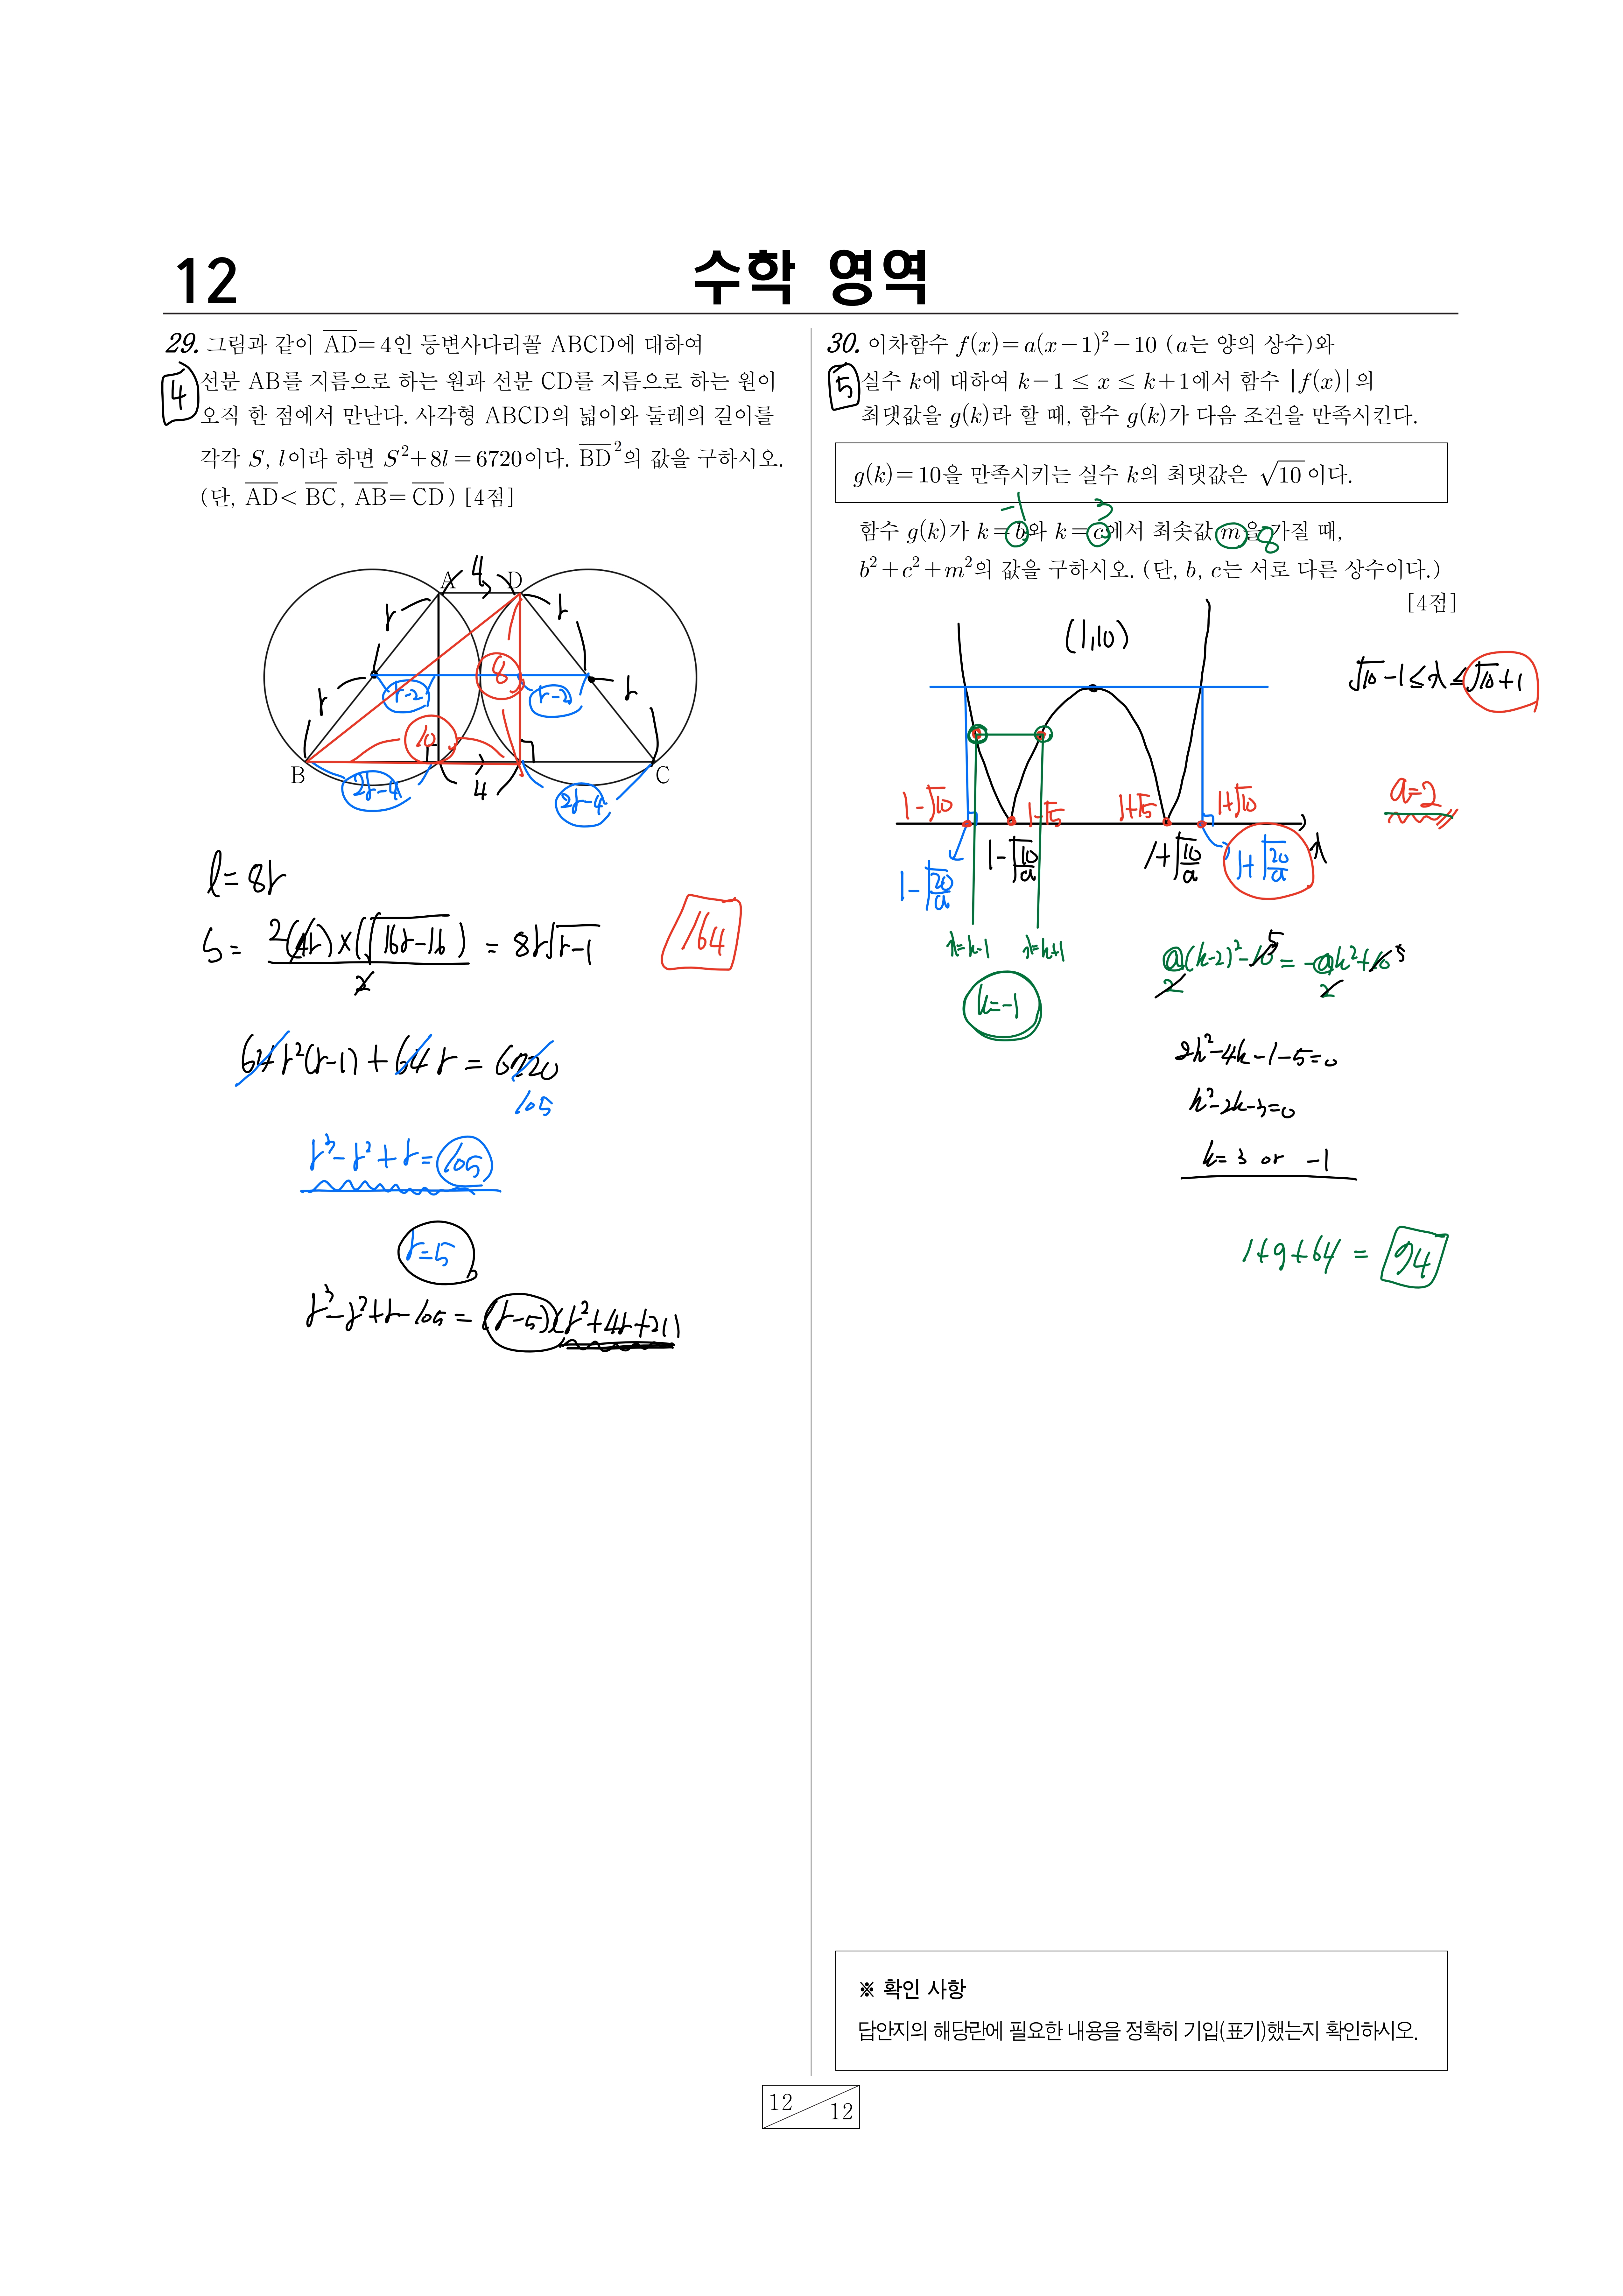 12
수학 영역
29. 그림과 같이 AD=4인 등변사다리꼴 ABCD에 대하여
4
선분 AB를 지름으로 하는 원과 선분 CD를 지름으로 하는 원이
오직 한 점에서 만난다. 사각형 ABCD의 넓이와 둘레의 길이를
각각 S, l이라 하면 S²+8l=6720이다. BD²의 값을 구하시오.
(단, AD<BC, AB=CD) [4점]
A 4 D
r r
r-2 8 r-2
r r
10
B C
2r-4 4 2r-4
l=8r
S= 2(4r)×(√16r-16) / 2 = 8r√r-1
164
64r²(r-1)+64r=6720
105
r³-r²+r=105
r=5
r³-r²+r-105=(r-5)(r²+4r+21)
30. 이차함수 f(x)=a(x-1)²-10 (a는 양의 상수)와
5
실수 k에 대하여 k-1≤x≤k+1에서 함수 |f(x)|의
최댓값을 g(k)라 할 때, 함수 g(k)가 다음 조건을 만족시킨다.
g(k)=10을 만족시키는 실수 k의 최댓값은 √10이다.
-1 3
함수 g(k)가 k=b와 k=c에서 최솟값 m을 가질 때,
8
b²+c²+m²의 값을 구하시오. (단, b, c는 서로 다른 상수이다.)
[4점]
(1,10)
√10-1≤x≤√10+1
1-√10 1-√5 1+√5 1+√10
a=2
1-√20/a 1-√10/a 1+√10/a 1+√20/a x
x=k-1 x=k+1
k=-1
a(k-2)²-10 5 = -ak²+10 5
2 2
2k²-4k-1-5=0
k²-2k-3=0
k=3 or -1
1+9+64=94
※ 확인 사항
답안지의 해당란에 필요한 내용을 정확히 기입(표기)했는지 확인하시오.
12
12